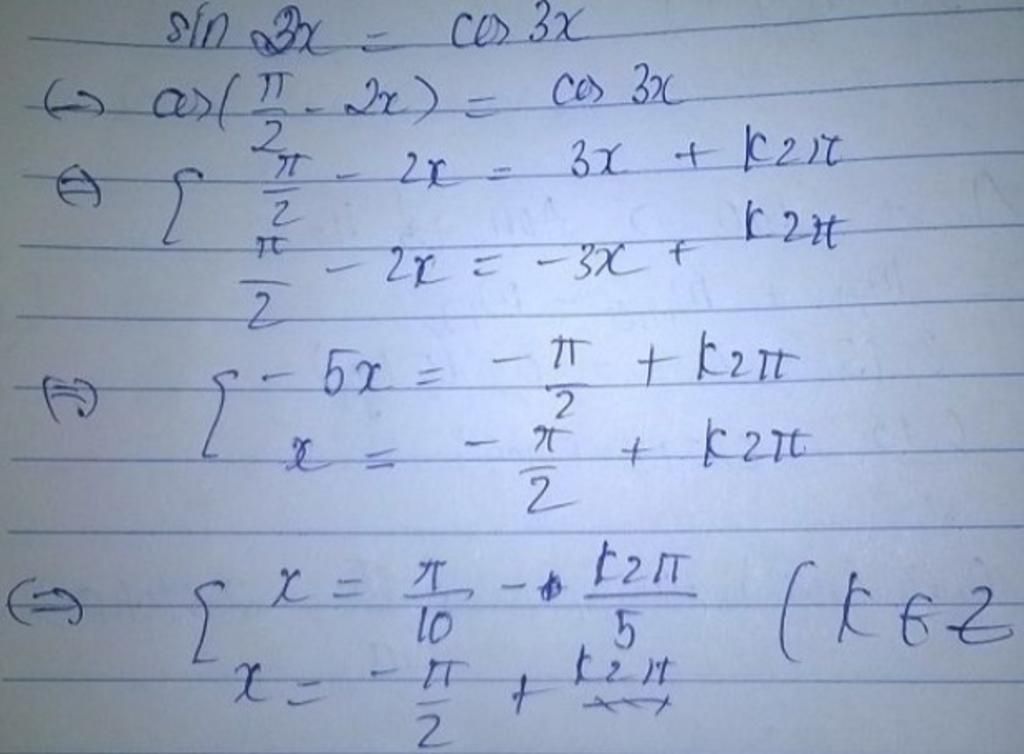 sin 2x = cos 3x
⇔ cos(π/2 - 2x) = cos 3x
⇔ { π/2 - 2x = 3x + k2π
π/2 - 2x = -3x + k2π
⇔ { -5x = -π/2 + k2π
x = -π/2 + k2π
⇔ { x = π/10 - k2π/5 (k ∈ Z
x = -π/2 + k2π